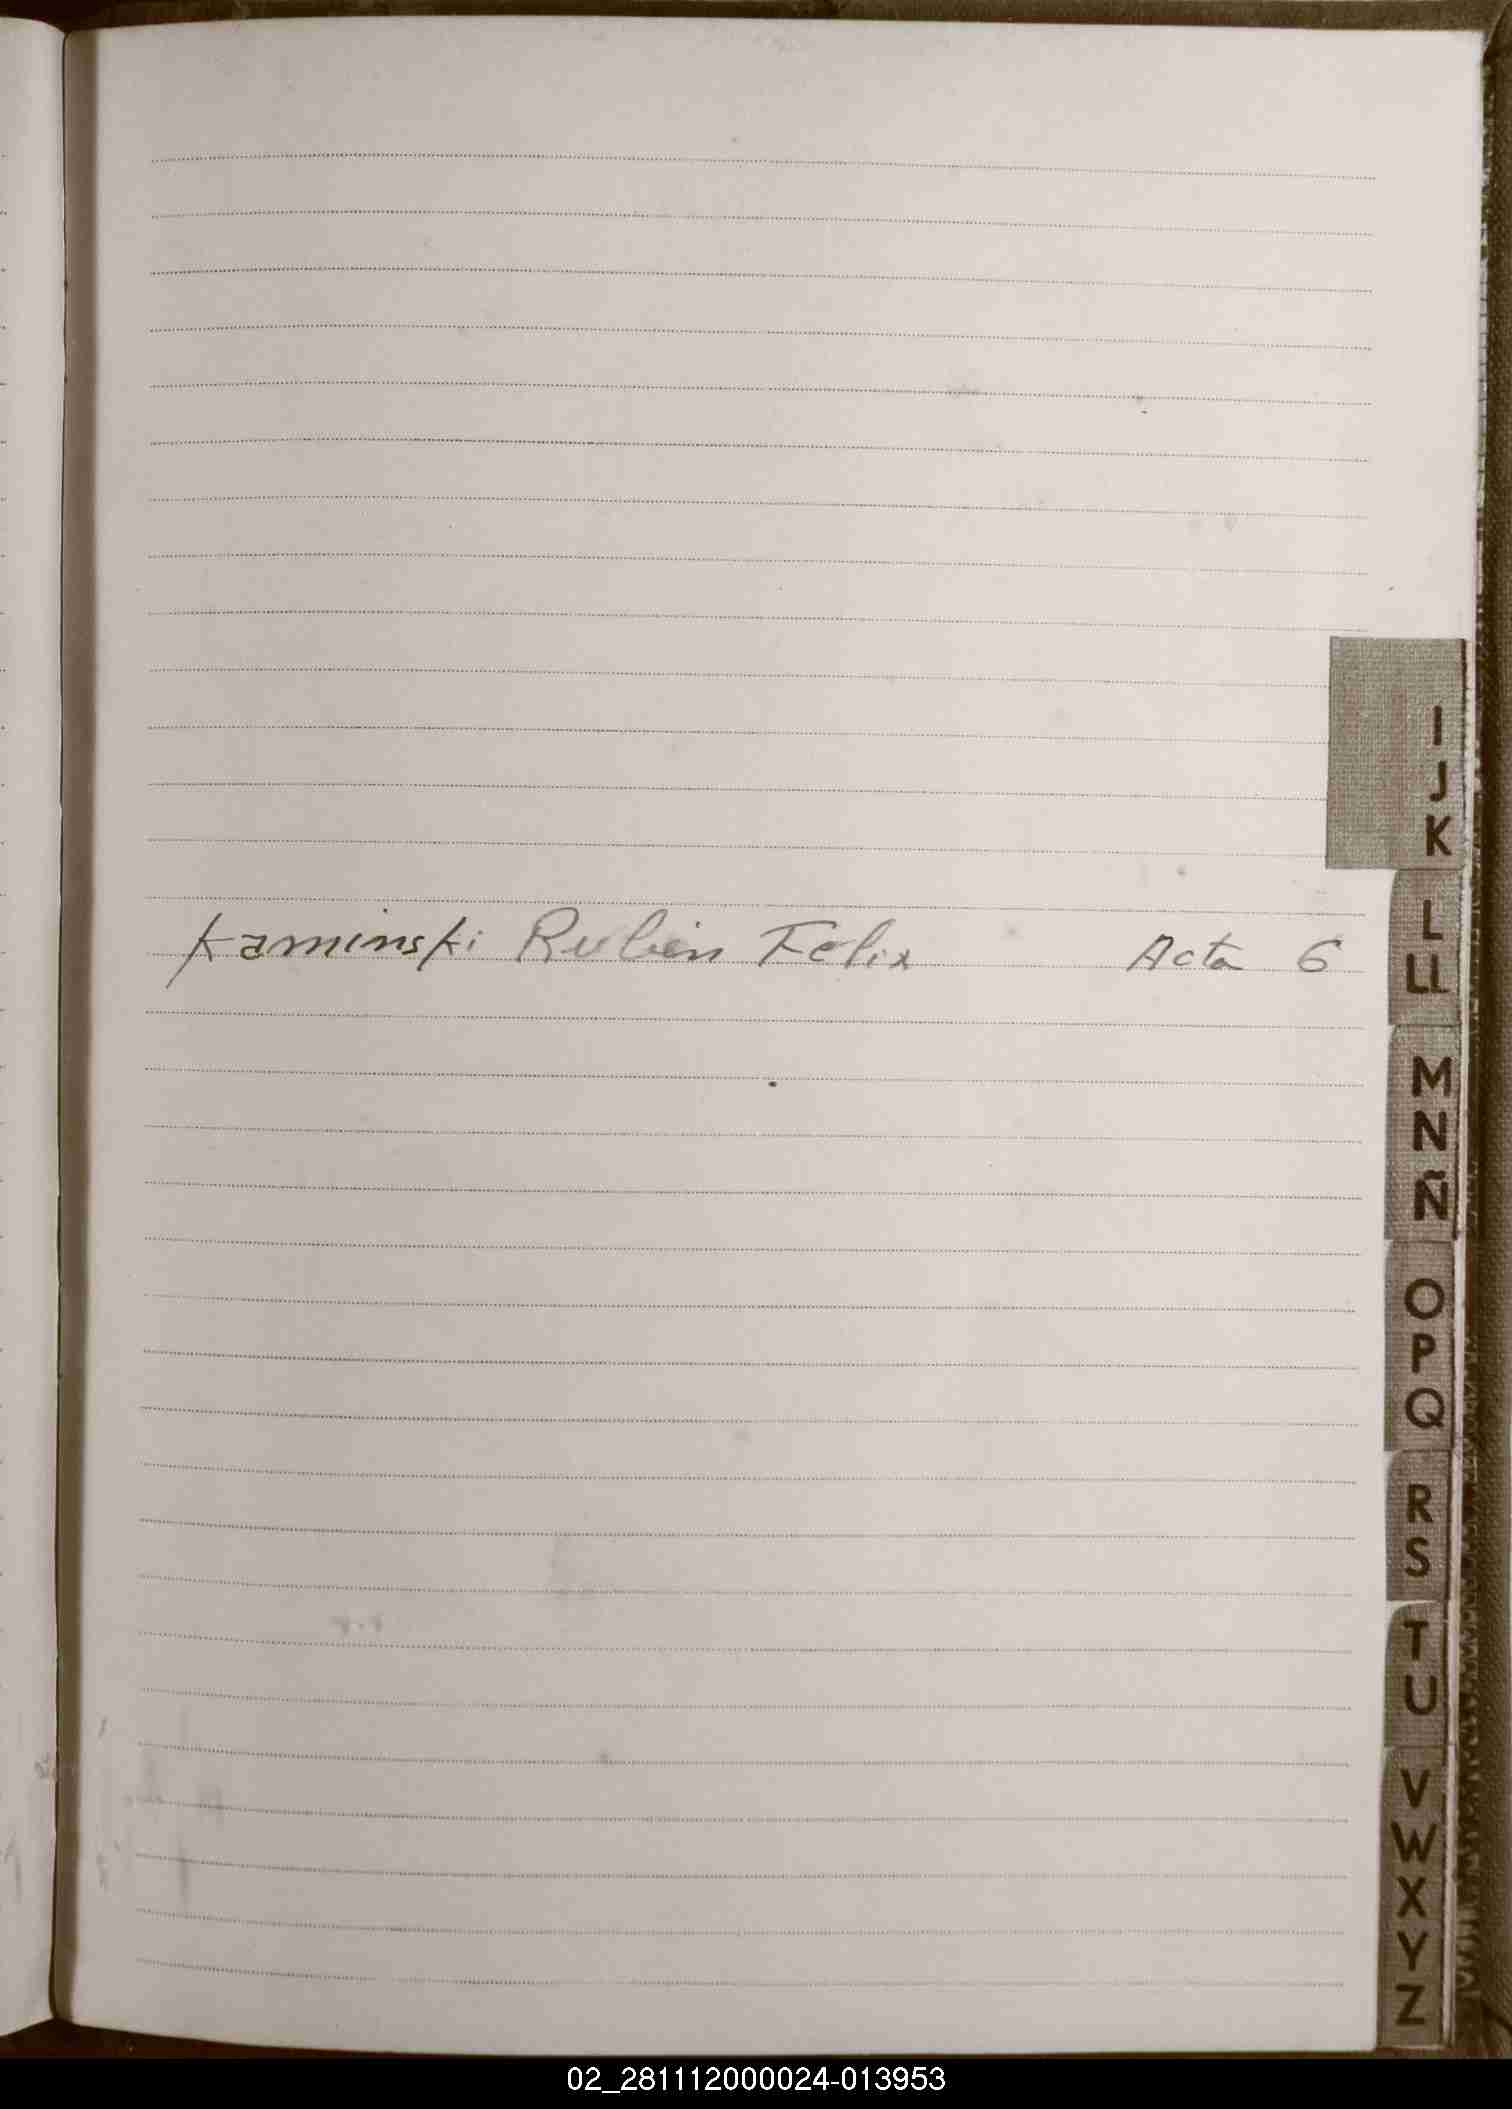 Kaminski Ruben Felix Acta 6
I
J
K
L
LL
M
N
Ñ
O
P
Q
R
S
T
U
V
W
X
Y
Z
02_281112000024-013953